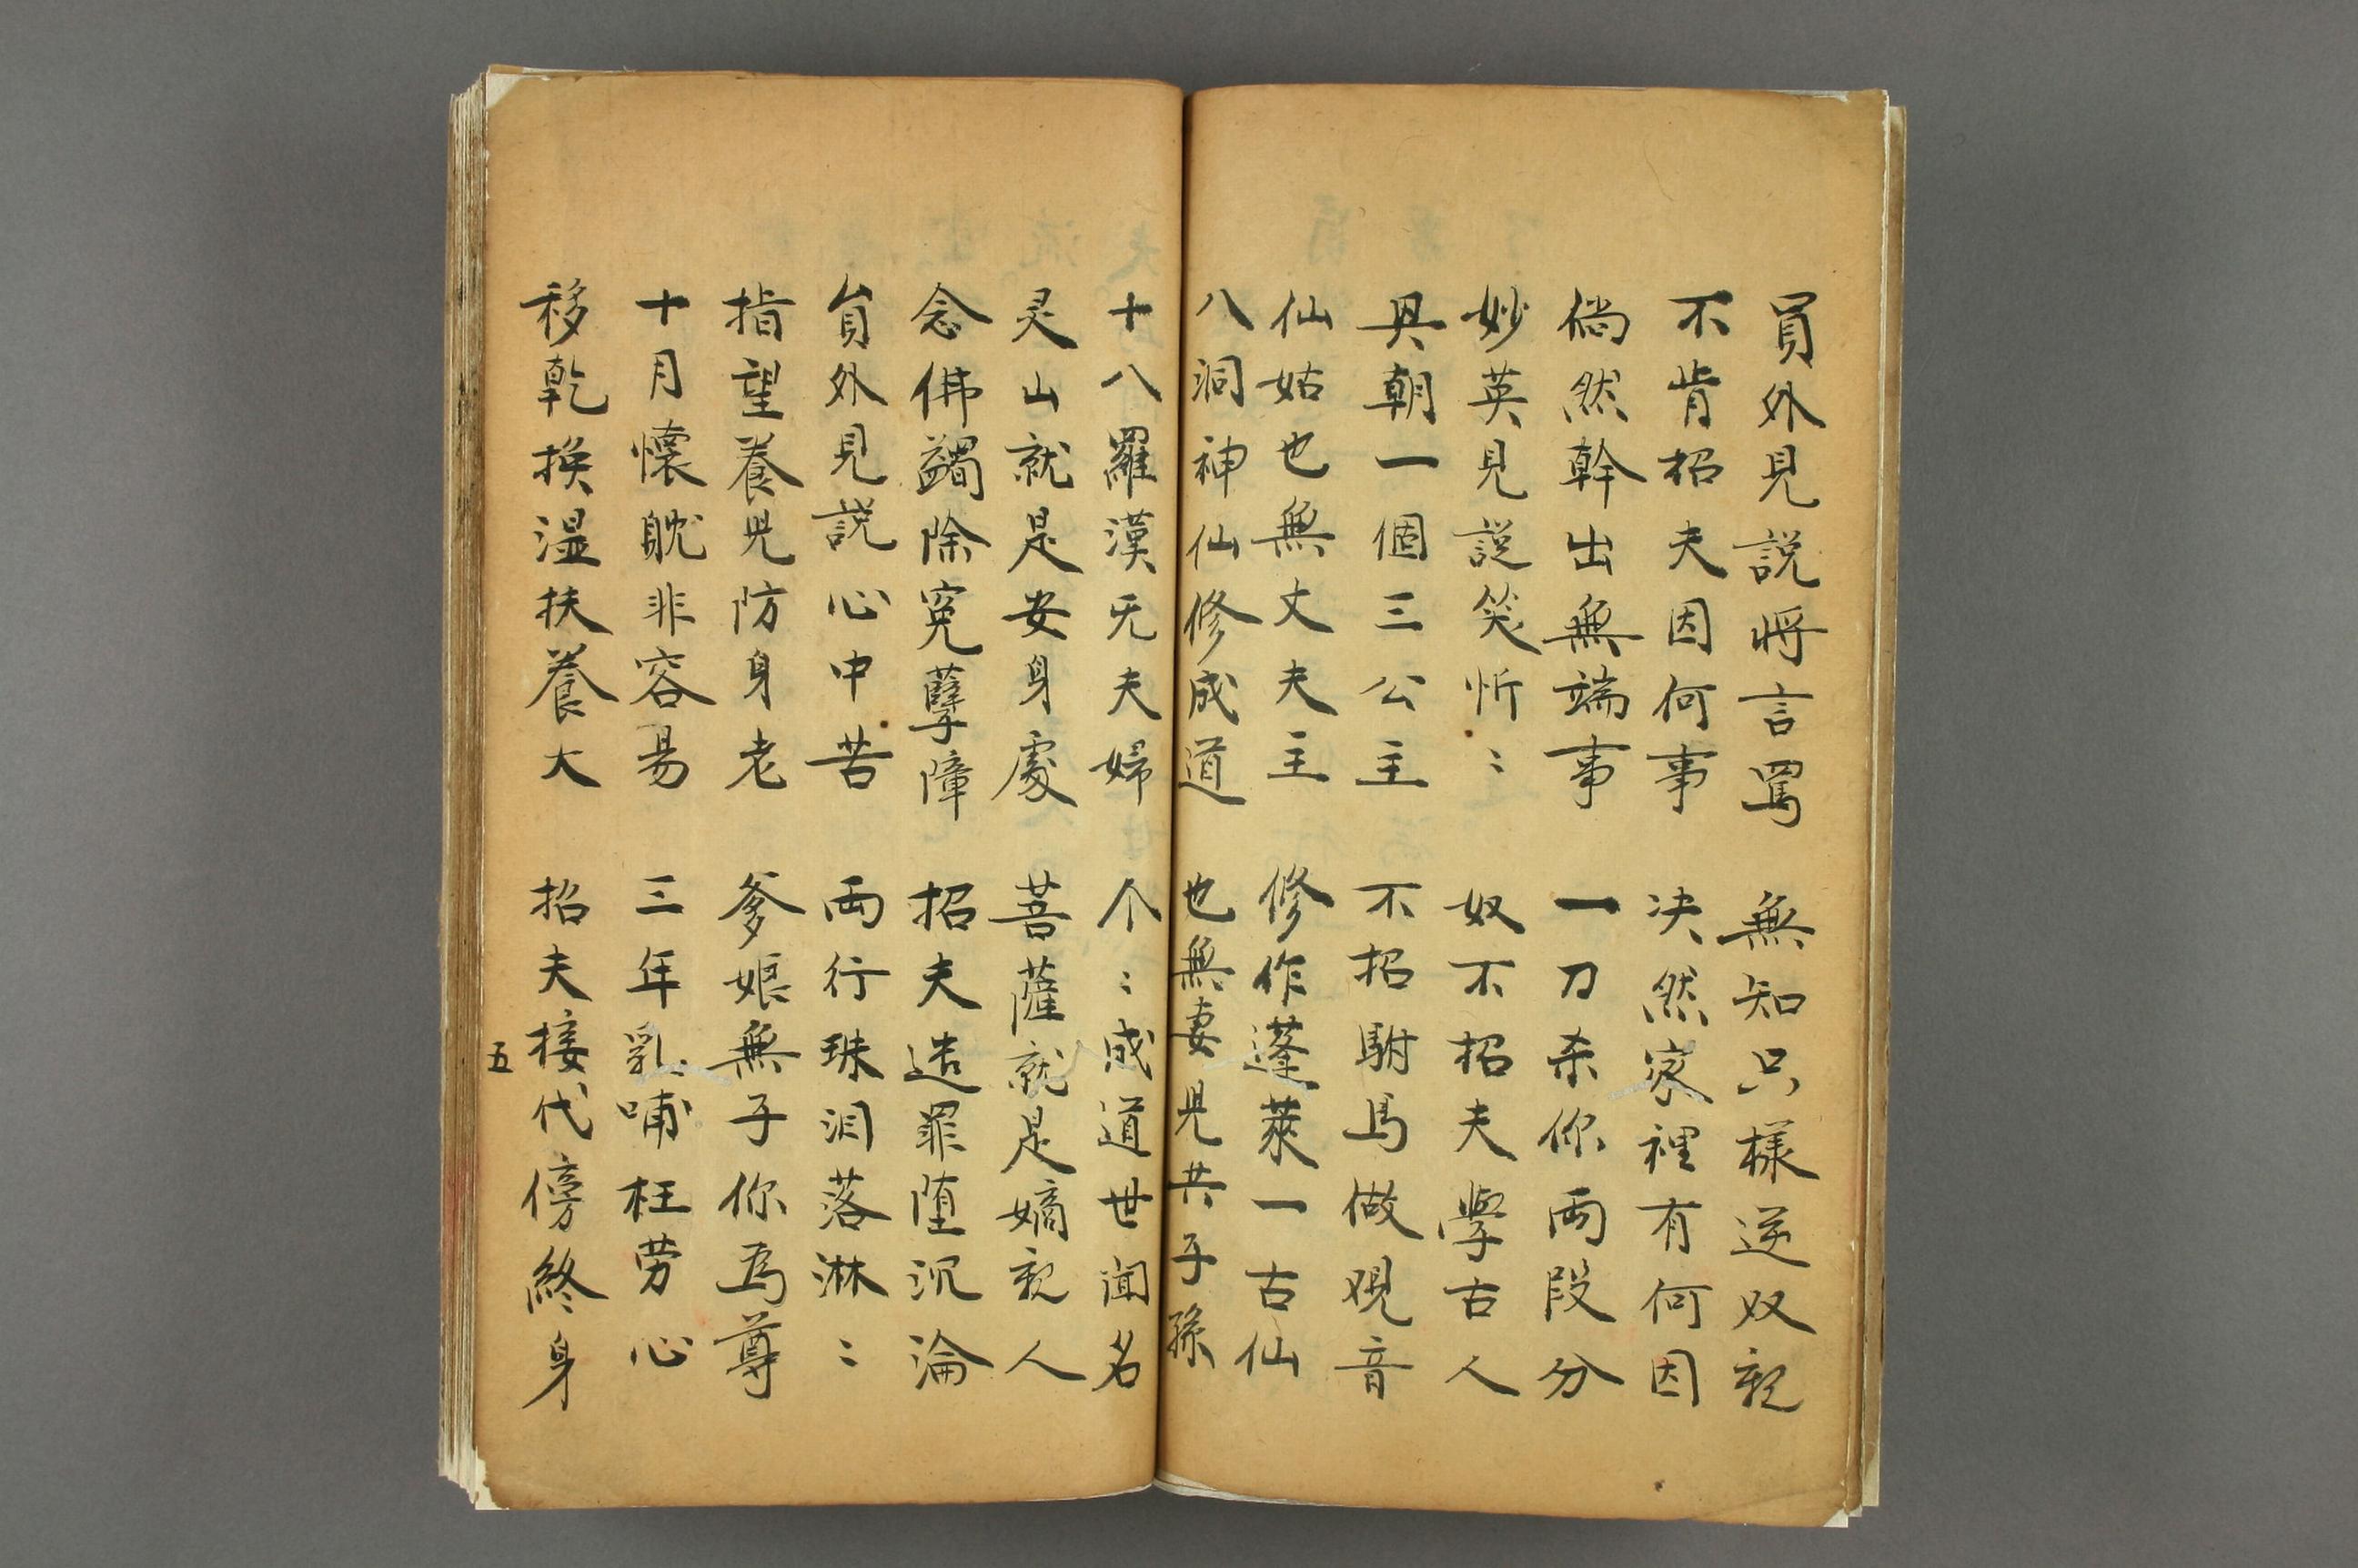 員外見説將言罵　無知只樣逆奴親
不肯招夫因何事　决然家裡有何因
倘然幹出無端事　一刀杀你両段分
妙英見説笑忻〻　奴不招夫學古人
具朝一個三公主　不招駙馬做覌音
仙姑也無丈夫主　修作蓬萊一古仙
八洞神仙修成道　也無妻児共子孫
十八羅漢无夫婦　个〻成道世闻名
灵山就是安身處　菩薩就是嫡親人
念佛蠲除寃孽障　招夫造罪堕沉淪
員外見説心中苦　両行珠泪落淋〻
指望養児防身老　爹娘無子你為尊
十月懷躭非容易　三年乳哺枉劳心
移乾换湿扶養大　招夫接代傍終身
五